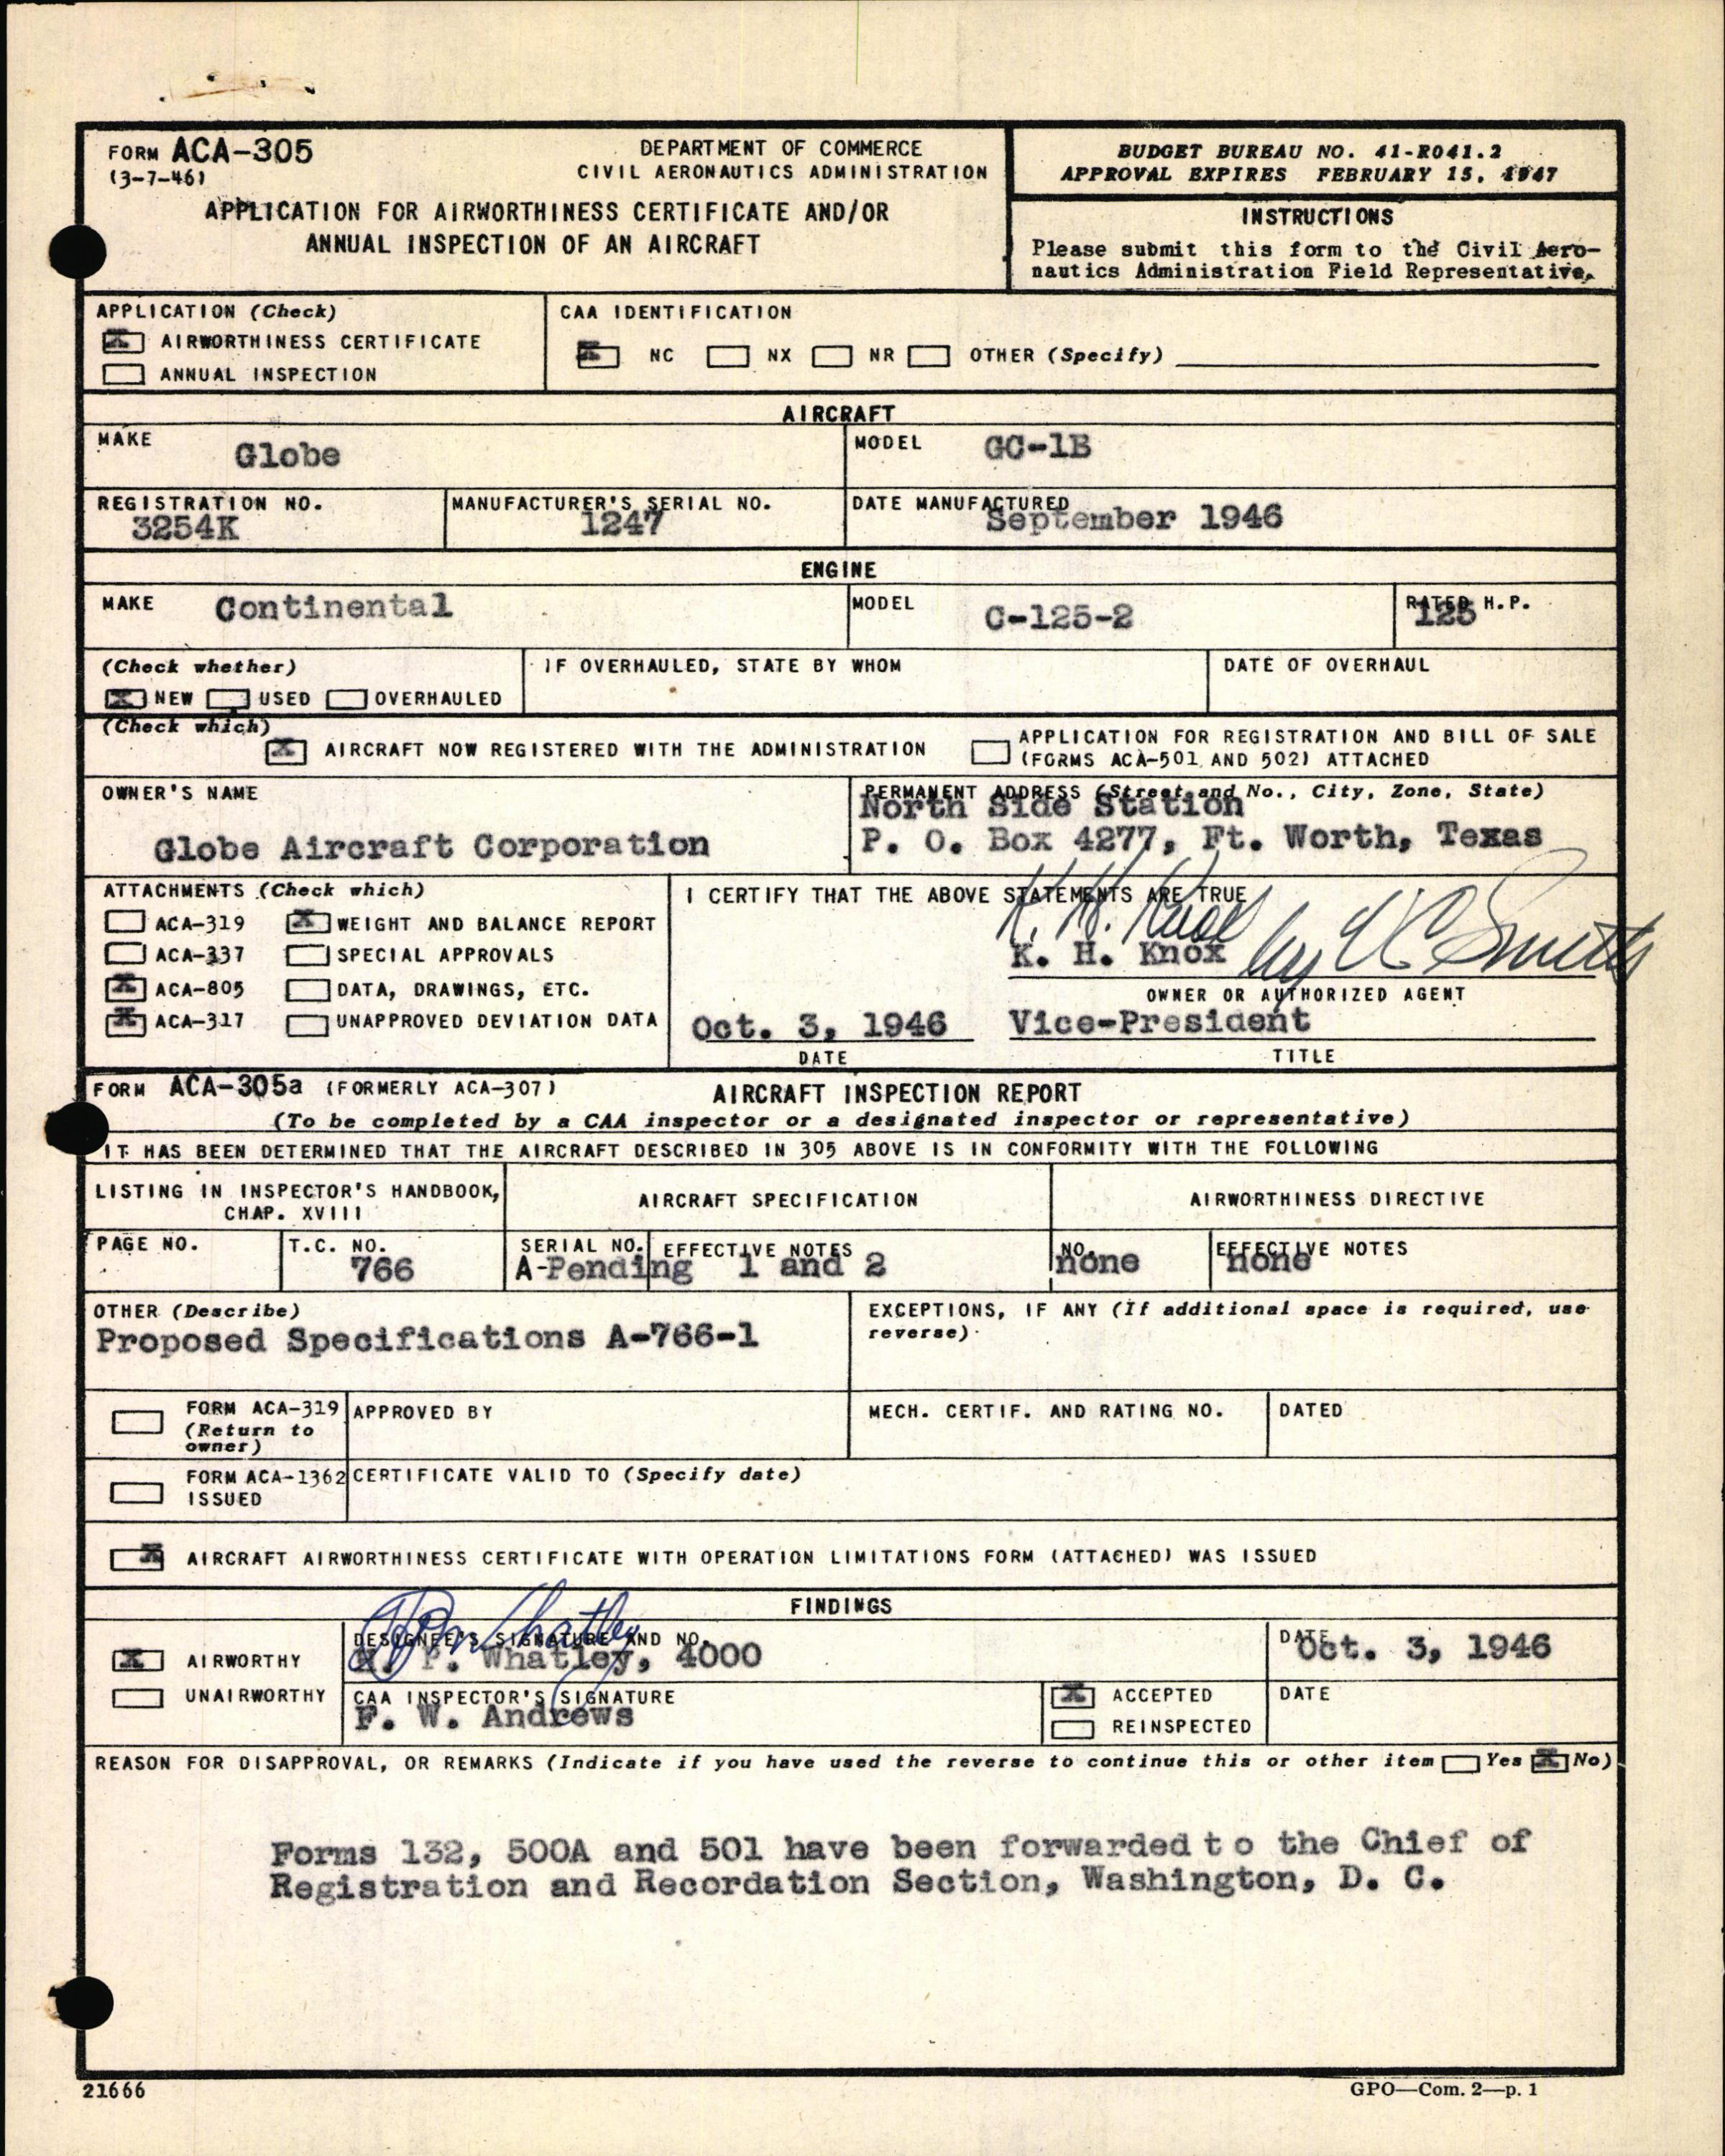 FORM ACA-305
(3-7-46)
DEPARTMENT OF COMMERCE
CIVIL AERONAUTICS ADMINISTRATION
APPLICATION FOR AIRWORTHINESS CERTIFICATE AND/OR
ANNUAL INSPECTION OF AN AIRCRAFT
BUDGET BUREAU NO. 41-R041.2
APPROVAL EXPIRES FEBRUARY 15, 1947
INSTRUCTIONS
Please submit this form to the Civil Aero-
nautics Administration Field Representative.
APPLICATION (Check)
X AIRWORTHINESS CERTIFICATE
ANNUAL INSPECTION
CAA IDENTIFICATION
X NC NX NR OTHER (Specify)
AIRCRAFT
MAKE Globe
MODEL GC-1B
REGISTRATION NO.
3254K
MANUFACTURER'S SERIAL NO.
1247
DATE MANUFACTURED
September 1946
ENGINE
MAKE Continental
MODEL C-125-2
RATED H.P.
125
(Check whether)
X NEW USED OVERHAULED
IF OVERHAULED, STATE BY WHOM
DATE OF OVERHAUL
(Check which)
X AIRCRAFT NOW REGISTERED WITH THE ADMINISTRATION
APPLICATION FOR REGISTRATION AND BILL OF SALE
(FORMS ACA-501 AND 502) ATTACHED
OWNER'S NAME
Globe Aircraft Corporation
PERMANENT ADDRESS (Street and No., City, Zone, State)
North Side Station
P. O. Box 4277, Ft. Worth, Texas
ATTACHMENTS (Check which)
ACA-319 X WEIGHT AND BALANCE REPORT
ACA-337 SPECIAL APPROVALS
X ACA-805 DATA, DRAWINGS, ETC.
X ACA-317 UNAPPROVED DEVIATION DATA
I CERTIFY THAT THE ABOVE STATEMENTS ARE TRUE
K. H. Knox by V C Smith
K. H. Knox
OWNER OR AUTHORIZED AGENT
Oct. 3, 1946 Vice-President
DATE TITLE
FORM ACA-305a (FORMERLY ACA-307) AIRCRAFT INSPECTION REPORT
(To be completed by a CAA inspector or a designated inspector or representative)
IT HAS BEEN DETERMINED THAT THE AIRCRAFT DESCRIBED IN 305 ABOVE IS IN CONFORMITY WITH THE FOLLOWING
LISTING IN INSPECTOR'S HANDBOOK,
CHAP. XVIII
AIRCRAFT SPECIFICATION
AIRWORTHINESS DIRECTIVE
PAGE NO.
T.C. NO.
766
SERIAL NO.
A-Pending
EFFECTIVE NOTES
1 and 2
NO.
none
EFFECTIVE NOTES
none
OTHER (Describe)
Proposed Specifications A-766-1
EXCEPTIONS, IF ANY (If additional space is required, use
reverse)
FORM ACA-319
(Return to
owner)
APPROVED BY
MECH. CERTIF. AND RATING NO.
DATED
FORM ACA-1362
ISSUED
CERTIFICATE VALID TO (Specify date)
X AIRCRAFT AIRWORTHINESS CERTIFICATE WITH OPERATION LIMITATIONS FORM (ATTACHED) WAS ISSUED
FINDINGS
X AIRWORTHY
UNAIRWORTHY
DESIGNEE'S SIGNATURE AND NO.
P. Whatley, 4000
DATE
Oct. 3, 1946
CAA INSPECTOR'S SIGNATURE
F. W. Andrews
X ACCEPTED
REINSPECTED
DATE
REASON FOR DISAPPROVAL, OR REMARKS (Indicate if you have used the reverse to continue this or other item Yes X No)
Forms 132, 500A and 501 have been forwarded to the Chief of
Registration and Recordation Section, Washington, D. C.
21666
GPO—Com. 2—p. 1